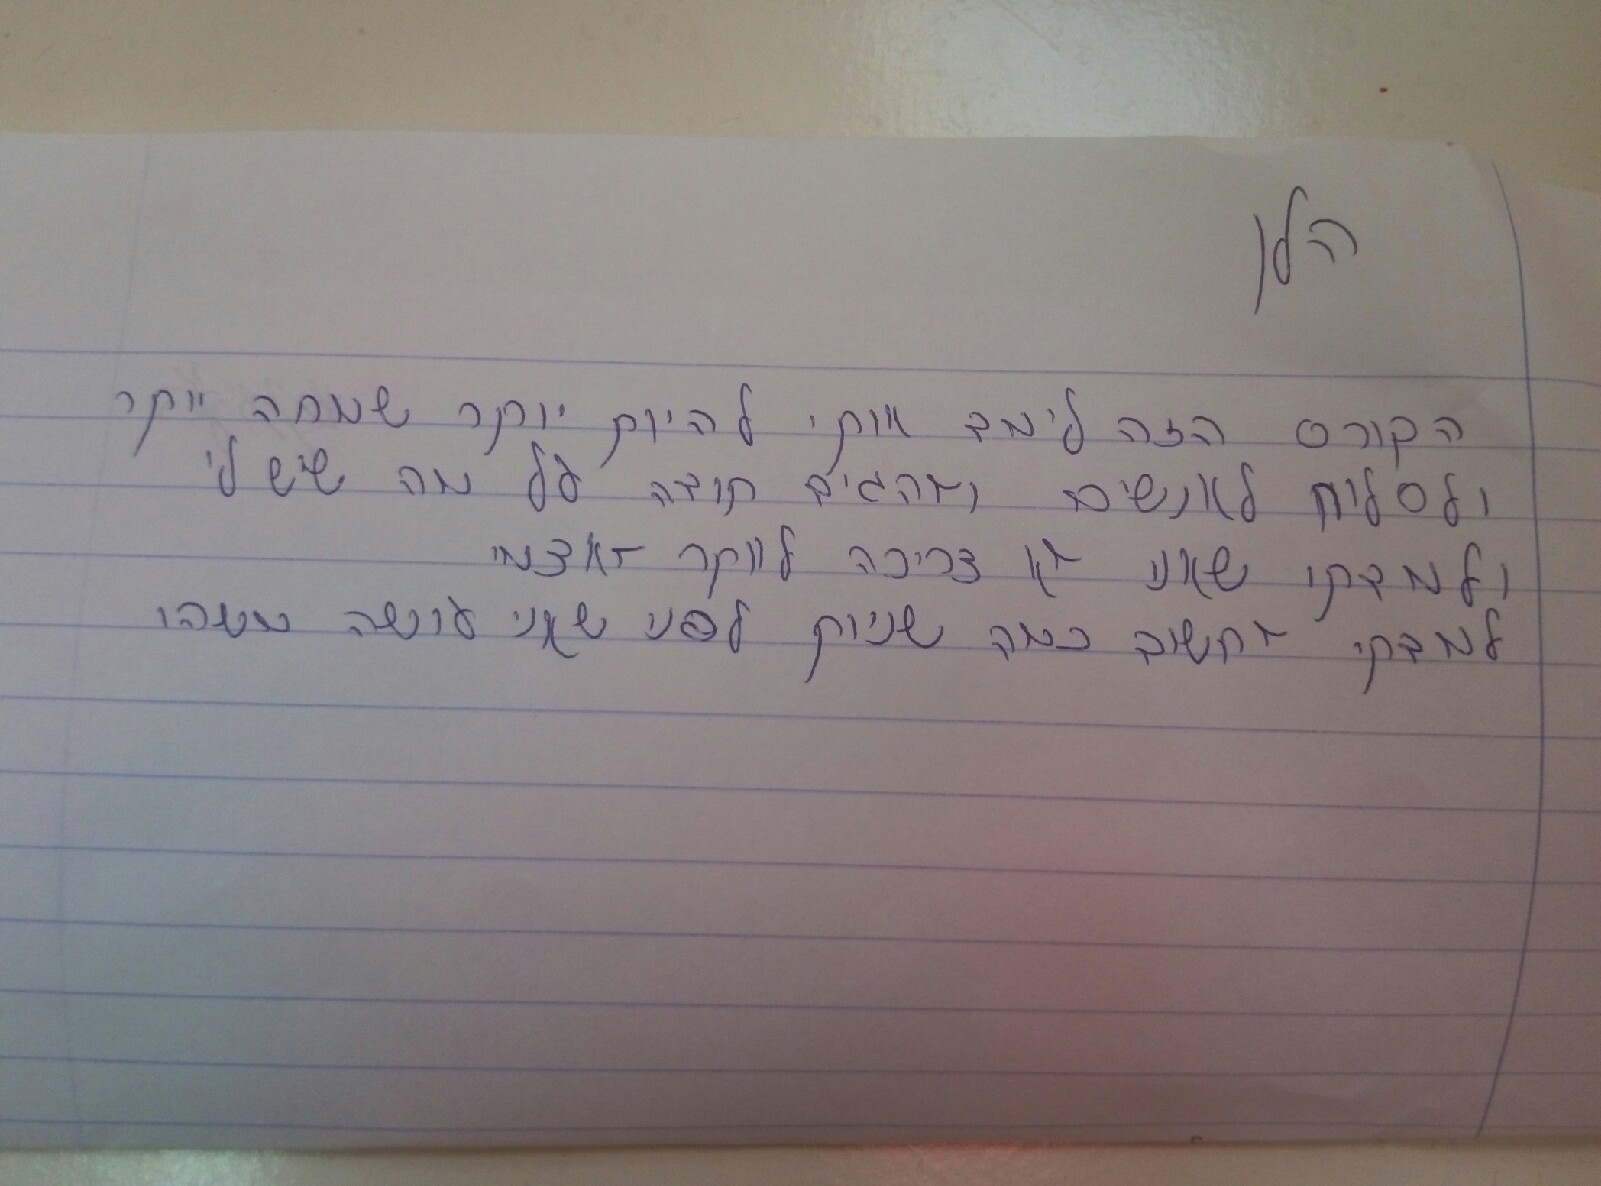 הלן
הקורס הזה לימד אותי להיות יותר שמחה יותר
ולסלוח לאנשים ולהגיד תודה על מה שיש לי
ולמדתי שאני לא צריכה לוותר לאצמי
למדתי לחשוב כמה שניות לפני שאני עושה משהו